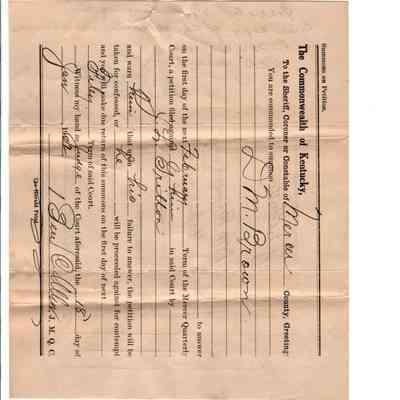 Summons on Petition.
The Commonwealth of Kentucky,
To the Sheriff, Coroner or Constable of Mercer County, Greeting:
You are commanded to summon
D M. Brown
to answer
on the first day of the next February Term of the Mercer Quarterly
Court, a petition filed against him in said Court by
Britton
and warn him that upon his failure to answer, the petition will be
taken for confessed, or he will be proceeded against for contempt
and you will make due return of this summons on the first day of next
Feby Term of said Court.
Witness my hand as Judge of the Court aforesaid, the 18 day of
Jan
Ben J. M. Q. C.